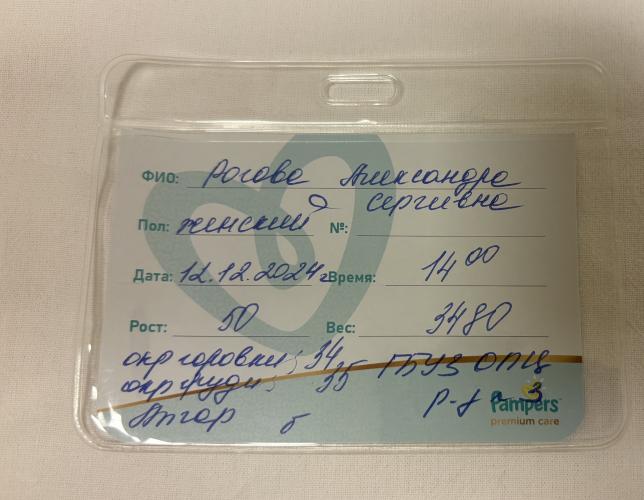 ФИО: Рогова Александра
Сергиевна
Пол: женский №:
Дата: 12.12.2024г Время: 14 00
Рост: 50 Вес: 3480
окр головки; 34
окр груди; 35 ГБУЗ ОПЦ
Апгар р-д 3
Pampers
premium care